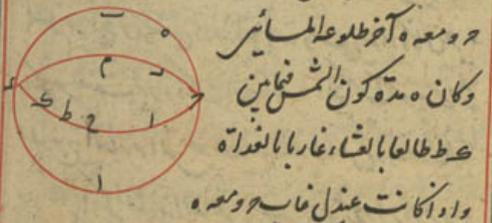 ح ومعه ه آخر طلوعه المسائى
وكان ه مدة كون الشمس فيما بين
ط طالعا بالعشاء غاربا بالغداة
واذا كانت عند ل غاب ح ومعه ه
ب
ه
م
د
ح
ء
ك ط ح ا
ل